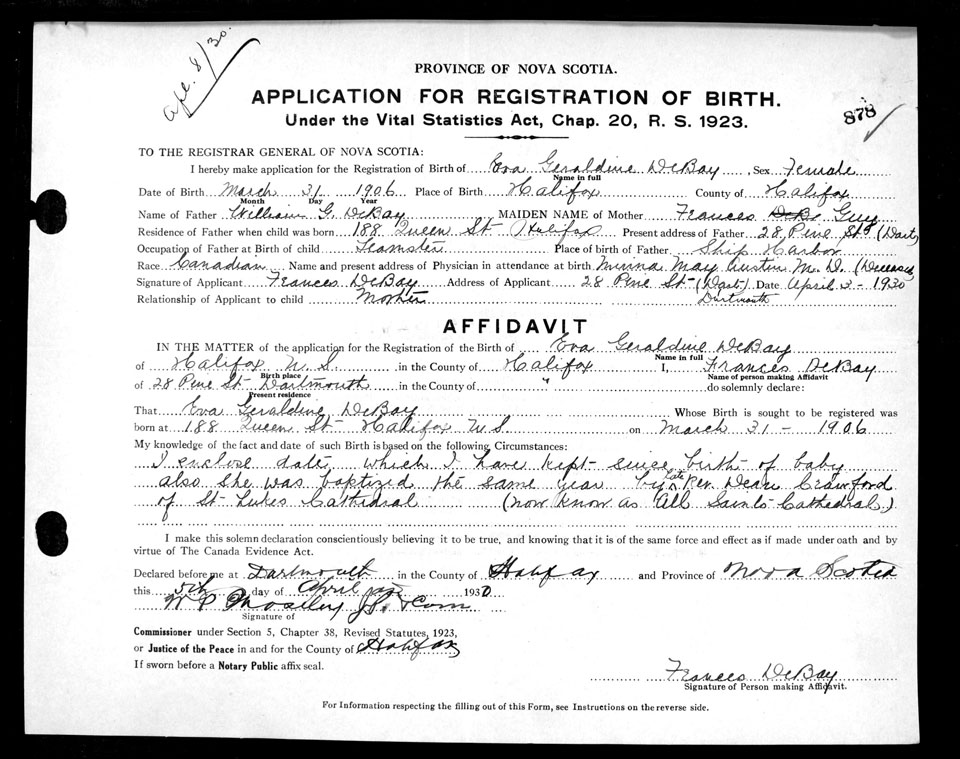 Apl. 8/30.
PROVINCE OF NOVA SCOTIA.
APPLICATION FOR REGISTRATION OF BIRTH.
878
Under the Vital Statistics Act, Chap. 20, R. S. 1923.
TO THE REGISTRAR GENERAL OF NOVA SCOTIA:
I hereby make application for the Registration of Birth of Eva Geraldine DeBay Sex Female
Name in full
Date of Birth March 31 1906 Place of Birth Halifax County of Halifax
Month Day Year
Name of Father William G. DeBay MAIDEN NAME of Mother Frances DeBa Guy
Residence of Father when child was born 188 Queen St Halifax Present address of Father 28 Pine St (Dart)
Occupation of Father at Birth of child Teamster Place of birth of Father Ship Harbor
Race Canadian Name and present address of Physician in attendance at birth Minna May Austin M.D. (Deceased)
Signature of Applicant Frances DeBay Address of Applicant 28 Pine St (Dart) Date April 3 - 1930
Relationship of Applicant to child Mother Dartmouth
AFFIDAVIT
IN THE MATTER of the application for the Registration of the Birth of Eva Geraldine DeBay
Name in full
of Halifax N. S in the County of Halifax I, Frances DeBay
Birth place Name of person making Affidavit
of 28 Pine St Dartmouth in the County of " do solemnly declare:
Present residence
That Eva Geraldine DeBay Whose Birth is sought to be registered was
born at 188 Queen St Halifax N.S on March 31 - 1906
My knowledge of the fact and date of such Birth is based on the following Circumstances:
I enclose date, which I have kept since birth of baby
also she was baptized the same year by late Rev. Dean Crawford
of St Lukes Cathedral (now know as All Saints Cathedral.)
I make this solemn declaration conscientiously believing it to be true, and knowing that it is of the same force and effect as if made under oath and by
virtue of The Canada Evidence Act.
Declared before me at Dartmouth in the County of Halifax and Province of Nova Scotia
this 5th day of April 1930
W P Moseley J.P. & Com
Signature of
Commissioner under Section 5, Chapter 38, Revised Statutes, 1923,
or Justice of the Peace in and for the County of Halifax
If sworn before a Notary Public affix seal.
Frances DeBay
Signature of Person making Affidavit.
For Information respecting the filling out of this Form, see Instructions on the reverse side.